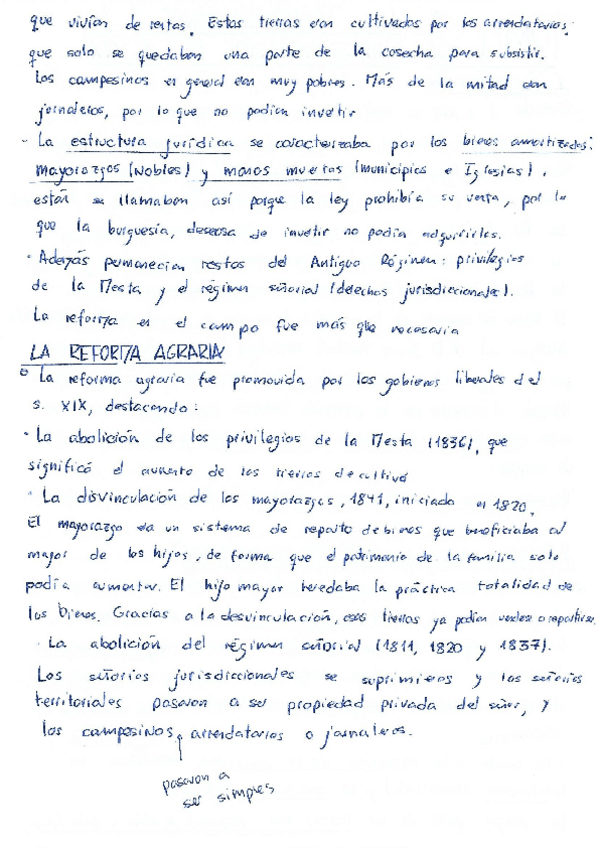 que vivían de rentas. Estas tierras eran cultivadas por los arrendatarios,
que solo se quedaban una parte de la cosecha para subsistir.
Los campesinos en general eran muy pobres. Más de la mitad eran
jornaleros, por lo que no podían invertir
- La estructura jurídica se caracterizaba por los bienes amortizados:
mayorazgos (Nobles) y manos muertas (municipios e Iglesias).
están se llamaban así porque la ley prohibía su venta, por lo
que la burguesía, deseosa de invertir no podía adquirirlas.
· Además permanecían restos del Antiguo Régimen: privilegios
de la Mesta y el régimen señorial (derechos jurisdiccionales).
La reforma en el campo fue más que necesaria
LA REFORMA AGRARIA
La reforma agraria fue promovida por los gobiernos liberales del
s. XIX, destacando:
· La abolición de los privilegios de la Mesta (1836), que
significó el aumento de las tierras de cultivo
· La desvinculación de los mayorazgos, 1841, iniciada en 1820.
El mayorazgo era un sistema de reparto de bienes que beneficiaba al
mayor de los hijos, de forma que el patrimonio de la familia solo
podía aumentar. El hijo mayor heredaba la práctica totalidad de
los bienes. Gracias a la desvinculación, esas tierras ya podían venderse o repartirse.
· La abolición del régimen señorial (1811, 1820 y 1837).
Los señoríos jurisdiccionales se suprimieron y los señoríos
territoriales pasaron a ser propiedad privada del señor, y
los campesinos arrendatarios o jornaleros.
pasaron a
ser simples